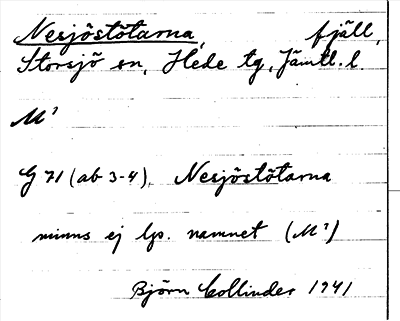 Nesjöstötarna, fjäll,
Storsjö sn, Hede tg, Jämtl. l.
M¹
G 71 (ab 3-4), Nesjöstötarna
minns ej lps. namnet (M¹)
Björn Collinder 1941